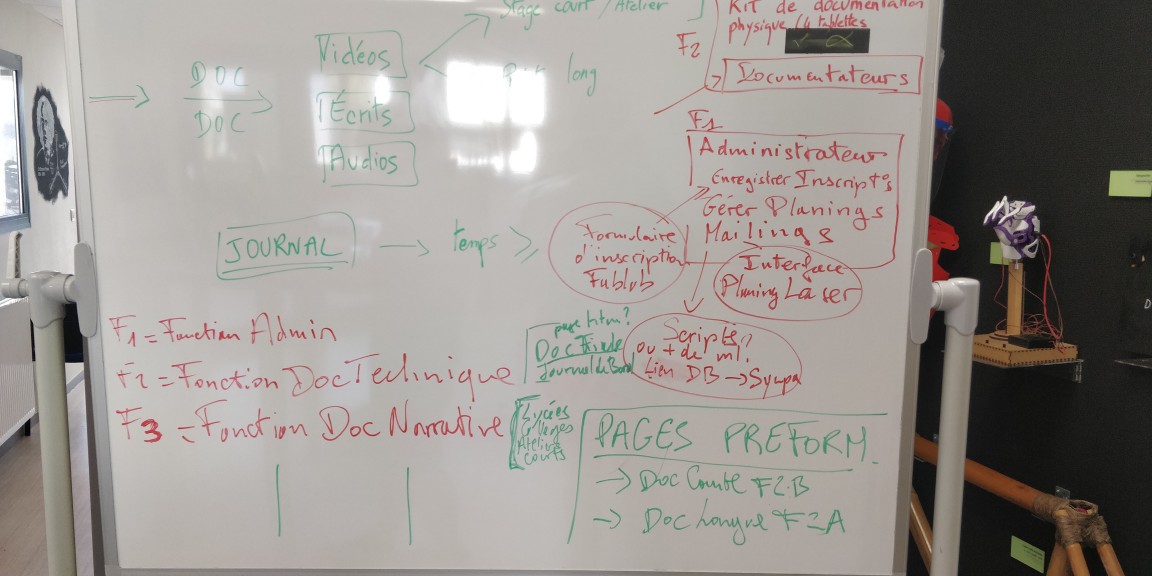 Stage court / Atelier
KIT de documentation
physique / 4 tablettes
F2
Documentateurs
Vidéos
DOC
DOC
long
Écrits
Audios
F1
Administrateur
Enregistrer Inscript°s
Gérer Planings
Mailings
JOURNAL
temps
Formulaire
d'inscription
Fablab
Interface
Planing Laser
F1 = Fonction Admin
F2 = Fonction Doc Technique
F3 = Fonction Doc Narrative
page htm?
Doc
Journal de Bord
Scripte?
ou + de ml.
Lien DB → Sympa
Lycées
Collèges
Ateliers
courts
PAGES PREFORM.
→ Doc Courte F2B
→ Doc Longue F2A